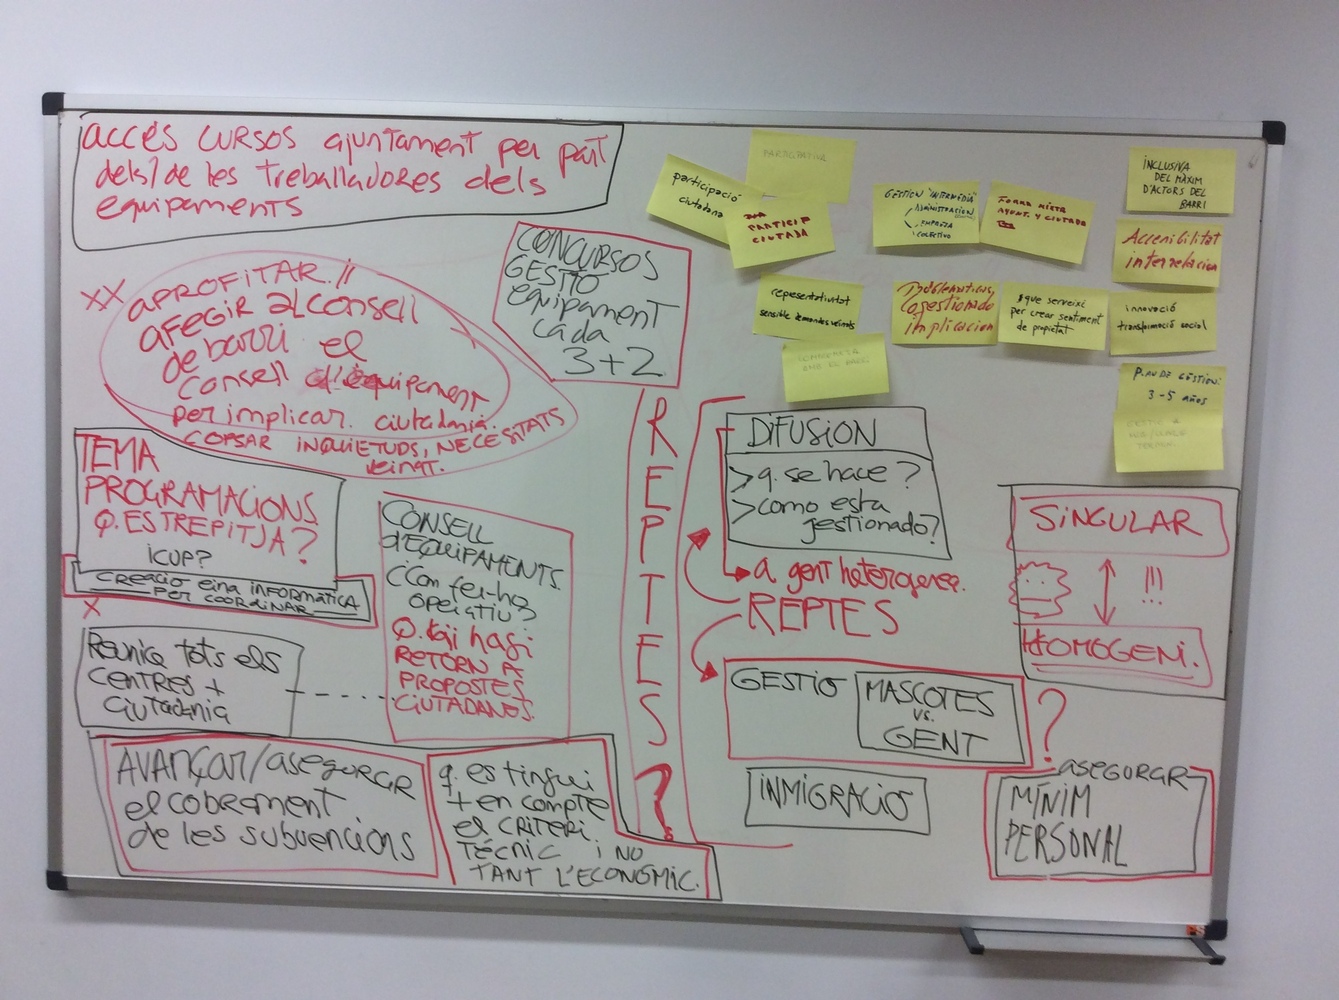 accés cursos ajuntament per part
dels/de les treballadores dels
equipaments
XX
APROFITAR //
AFEGIR al consell
de barri el
consell d'equipament
per implicar ciutadania.
COPSAR INQUIETUDS, NECESITATS
veinat.
CONCURSOS
GESTIO
equipament
cada
3+2
TEMA
PROGRAMACIONS
Q. ES TREPITJA?
iCUP?
CREACIO eina INFORMÀTICA
PER COORDINAR
X
Reunica tots els
centres +
ciutadania
CONSELL
d'EQUIPAMENTS.
¿Com fer-ho
operatiu?
Q. hi hagi
RETORN A
PROPOSTES
CIUTADANES.
AVANÇAR/asegurar
el cobrament
de les subvencions
q. es tingui
+ en compte
el CRITERI
TÈCNIC i NO
TANT L'ECONÒMIC.
REPTES?
PARTICIPATIVA
participació
ciutadana
PARTICIP
CIUTADA
GESTION "INTERMEDIA"
ADMINISTRACION
EMPRESA
COLECTIVO
FORMA MIXTA
AJUNT. Y CIUTADA
INCLUSIVA
DEL MÀXIM
D'ACTORS DEL
BARRI
Accesibilitat
interrelacion
representativitat
sensible demandes veinals
Problematicas,
cogestionado
implicacion
que serveixi
per crear sentiment
de propietat
innovació
transformació social
COMPARTIDA
AMB EL BARRI
PLAN DE GESTIÓN:
3-5 años
GESTIÓ A
DIFUSION
> q. se hace?
> como esta
gestionado?
a gent heterogenea.
REPTES
GESTIO
MASCOTES
vs.
GENT
?
INMIGRACIO
SINGULAR
!!!
HOMOGENI.
asegurar
MÍNIM
PERSONAL